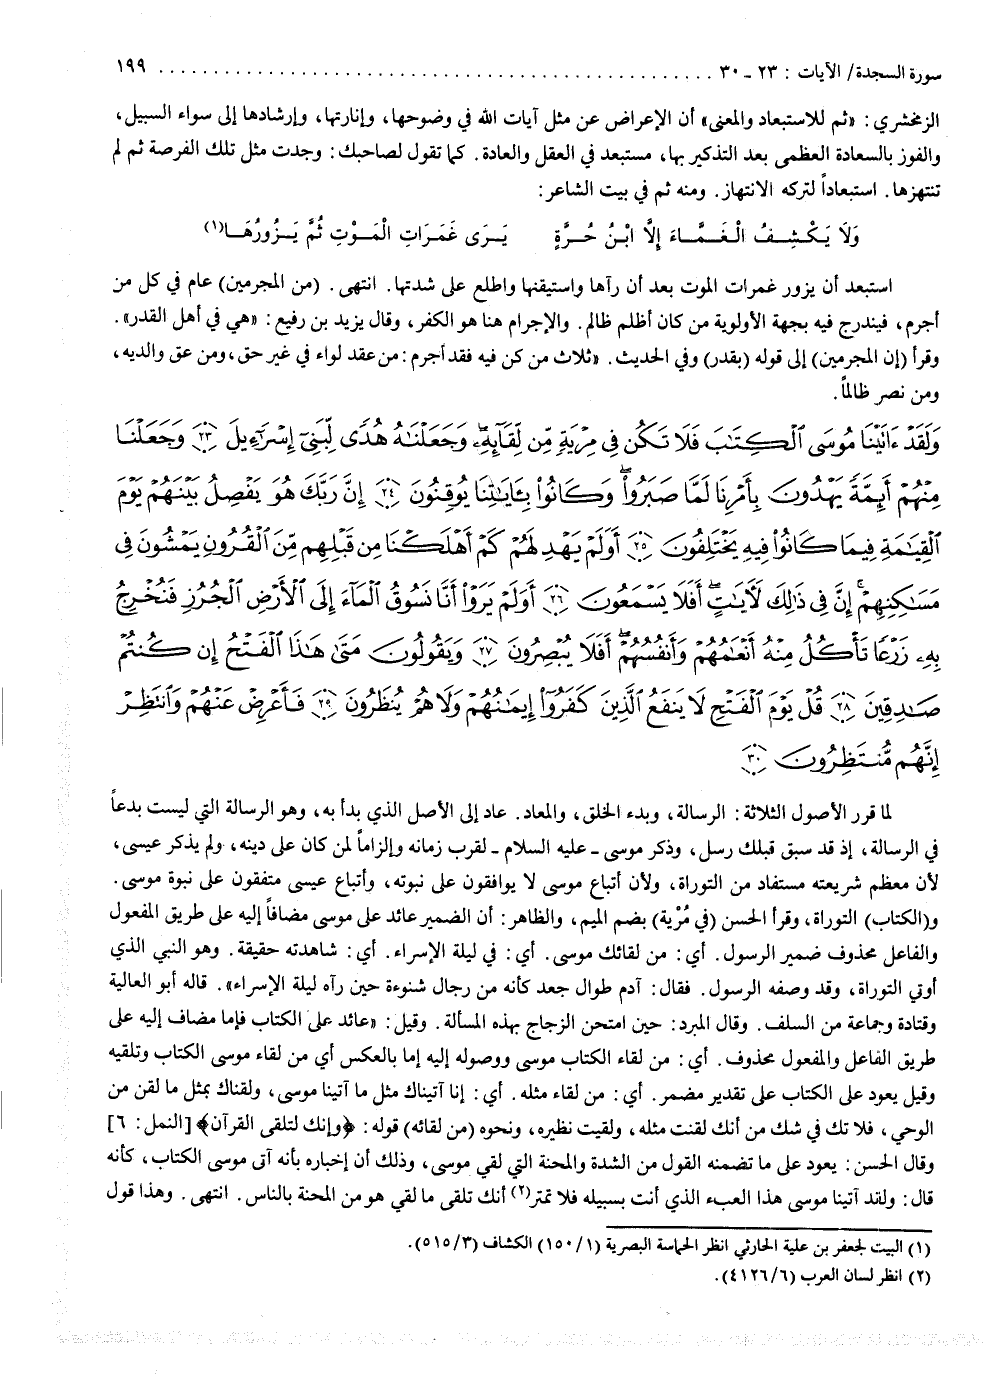 سورة السجدة/ الآيات : ٢٣ ـ ٣٠ ........................................ ١٩٩
الزمخشري: «ثم للاستبعاد والمعنى» أن الإعراض عن مثل آيات الله في وضوحها، وإنارتها، وإرشادها إلى سواء السبيل،
والفوز بالسعادة العظمى بعد التذكير بها، مستبعد في العقل والعادة. كما تقول لصاحبك: وجدت مثل تلك الفرصة ثم لم
تنتهزها. استبعاداً لتركه الانتهاز. ومنه ثم في بيت الشاعر:
وَلاَ يَكْشِفُ الْغَمَّاءَ إِلاَّ ابْنُ حُرَّةٍ يَرَى غَمَرَاتِ الْمَوْتِ ثُمَّ يَزُورُهَا(١)
استبعد أن يزور غمرات الموت بعد أن رآها واستيقنها واطلع على شدتها. انتهى. (من المجرمين) عام في كل من
أجرم، فيندرج فيه بجهة الأولوية من كان أظلم ظالم. والإجرام هنا هو الكفر، وقال يزيد بن رفيع: «هي في أهل القدر».
وقرأ (إن المجرمين) إلى قوله (بقدر) وفي الحديث. «ثلاث من كن فيه فقد أجرم: من عقد لواء في غير حق، ومن عق والديه،
ومن نصر ظالماً.
وَلَقَدْ ءَاتَيْنَا مُوسَى ٱلْكِتَٰبَ فَلَا تَكُن فِى مِرْيَةٍ مِّن لِّقَآئِهِۦ وَجَعَلْنَٰهُ هُدًى لِّبَنِىٓ إِسْرَٰٓءِيلَ ﴿٢٣﴾ وَجَعَلْنَا
مِنْهُمْ أَئِمَّةً يَهْدُونَ بِأَمْرِنَا لَمَّا صَبَرُوا۟ وَكَانُوا۟ بِـَٔايَٰتِنَا يُوقِنُونَ ﴿٢٤﴾ إِنَّ رَبَّكَ هُوَ يَفْصِلُ بَيْنَهُمْ يَوْمَ
ٱلْقِيَٰمَةِ فِيمَا كَانُوا۟ فِيهِ يَخْتَلِفُونَ ﴿٢٥﴾ أَوَلَمْ يَهْدِ لَهُمْ كَمْ أَهْلَكْنَا مِن قَبْلِهِم مِّنَ ٱلْقُرُونِ يَمْشُونَ فِى
مَسَٰكِنِهِمْ إِنَّ فِى ذَٰلِكَ لَءَايَٰتٍ أَفَلَا يَسْمَعُونَ ﴿٢٦﴾ أَوَلَمْ يَرَوْا۟ أَنَّا نَسُوقُ ٱلْمَآءَ إِلَى ٱلْأَرْضِ ٱلْجُرُزِ فَنُخْرِجُ
بِهِۦ زَرْعًا تَأْكُلُ مِنْهُ أَنْعَٰمُهُمْ وَأَنفُسُهُمْ أَفَلَا يُبْصِرُونَ ﴿٢٧﴾ وَيَقُولُونَ مَتَىٰ هَٰذَا ٱلْفَتْحُ إِن كُنتُمْ
صَٰدِقِينَ ﴿٢٨﴾ قُلْ يَوْمَ ٱلْفَتْحِ لَا يَنفَعُ ٱلَّذِينَ كَفَرُوٓا۟ إِيمَٰنُهُمْ وَلَا هُمْ يُنظَرُونَ ﴿٢٩﴾ فَأَعْرِضْ عَنْهُمْ وَٱنتَظِرْ
إِنَّهُم مُّنتَظِرُونَ ﴿٣٠﴾
لما قرر الأصول الثلاثة: الرسالة، وبدء الخلق، والمعاد. عاد إلى الأصل الذي بدأ به، وهو الرسالة التي ليست بدعاً
في الرسالة، إذ قد سبق قبلك رسل، وذكر موسى ـ عليه السلام ـ لقرب زمانه وإلزاماً لمن كان على دينه، ولم يذكر عيسى،
لأن معظم شريعته مستفاد من التوراة، ولأن أتباع موسى لا يوافقون على نبوته، وأتباع عيسى متفقون على نبوة موسى.
و(الكتاب) التوراة، وقرأ الحسن (في مُرْية) بضم الميم، والظاهر: أن الضمير عائد على موسى مضافاً إليه على طريق المفعول
والفاعل محذوف ضمير الرسول. أي: من لقائك موسى. أي: في ليلة الإسراء. أي: شاهدته حقيقة. وهو النبي الذي
أوتي التوراة، وقد وصفه الرسول. فقال: آدم طوال جعد كأنه من رجال شنوءة حين رآه ليلة الإسراء». قاله أبو العالية
وقتادة وجماعة من السلف. وقال المبرد: حين امتحن الزجاج بهذه المسألة. وقيل: «عائد على الكتاب فإما مضاف إليه على
طريق الفاعل والمفعول محذوف. أي: من لقاء الكتاب موسى ووصوله إليه إما بالعكس أي من لقاء موسى الكتاب وتلقيه
وقيل يعود على الكتاب على تقدير مضمر. أي: من لقاء مثله. أي: إنا آتيناك مثل ما آتينا موسى، ولقناك بمثل ما لقن من
الوحي، فلا تك في شك من أنك لقنت مثله، ولقيت نظيره، ونحوه (من لقائه) قوله: ﴿وإنك لتلقى القرآن﴾ [النمل: ٦]
وقال الحسن: يعود على ما تضمنه القول من الشدة والمحنة التي لقي موسى، وذلك أن إخباره بأنه آتى موسى الكتاب، كأنه
قال: ولقد آتينا موسى هذا العبء الذي أنت بسبيله فلا تمتر(٢) أنك تلقى ما لقي هو من المحنة بالناس. انتهى. وهذا قول
(١) البيت لجعفر بن علية الحارثي انظر الحماسة البصرية (١/١٥٠) الكشاف (٣/٥١٥).
(٢) انظر لسان العرب (٦/٤١٢٦).